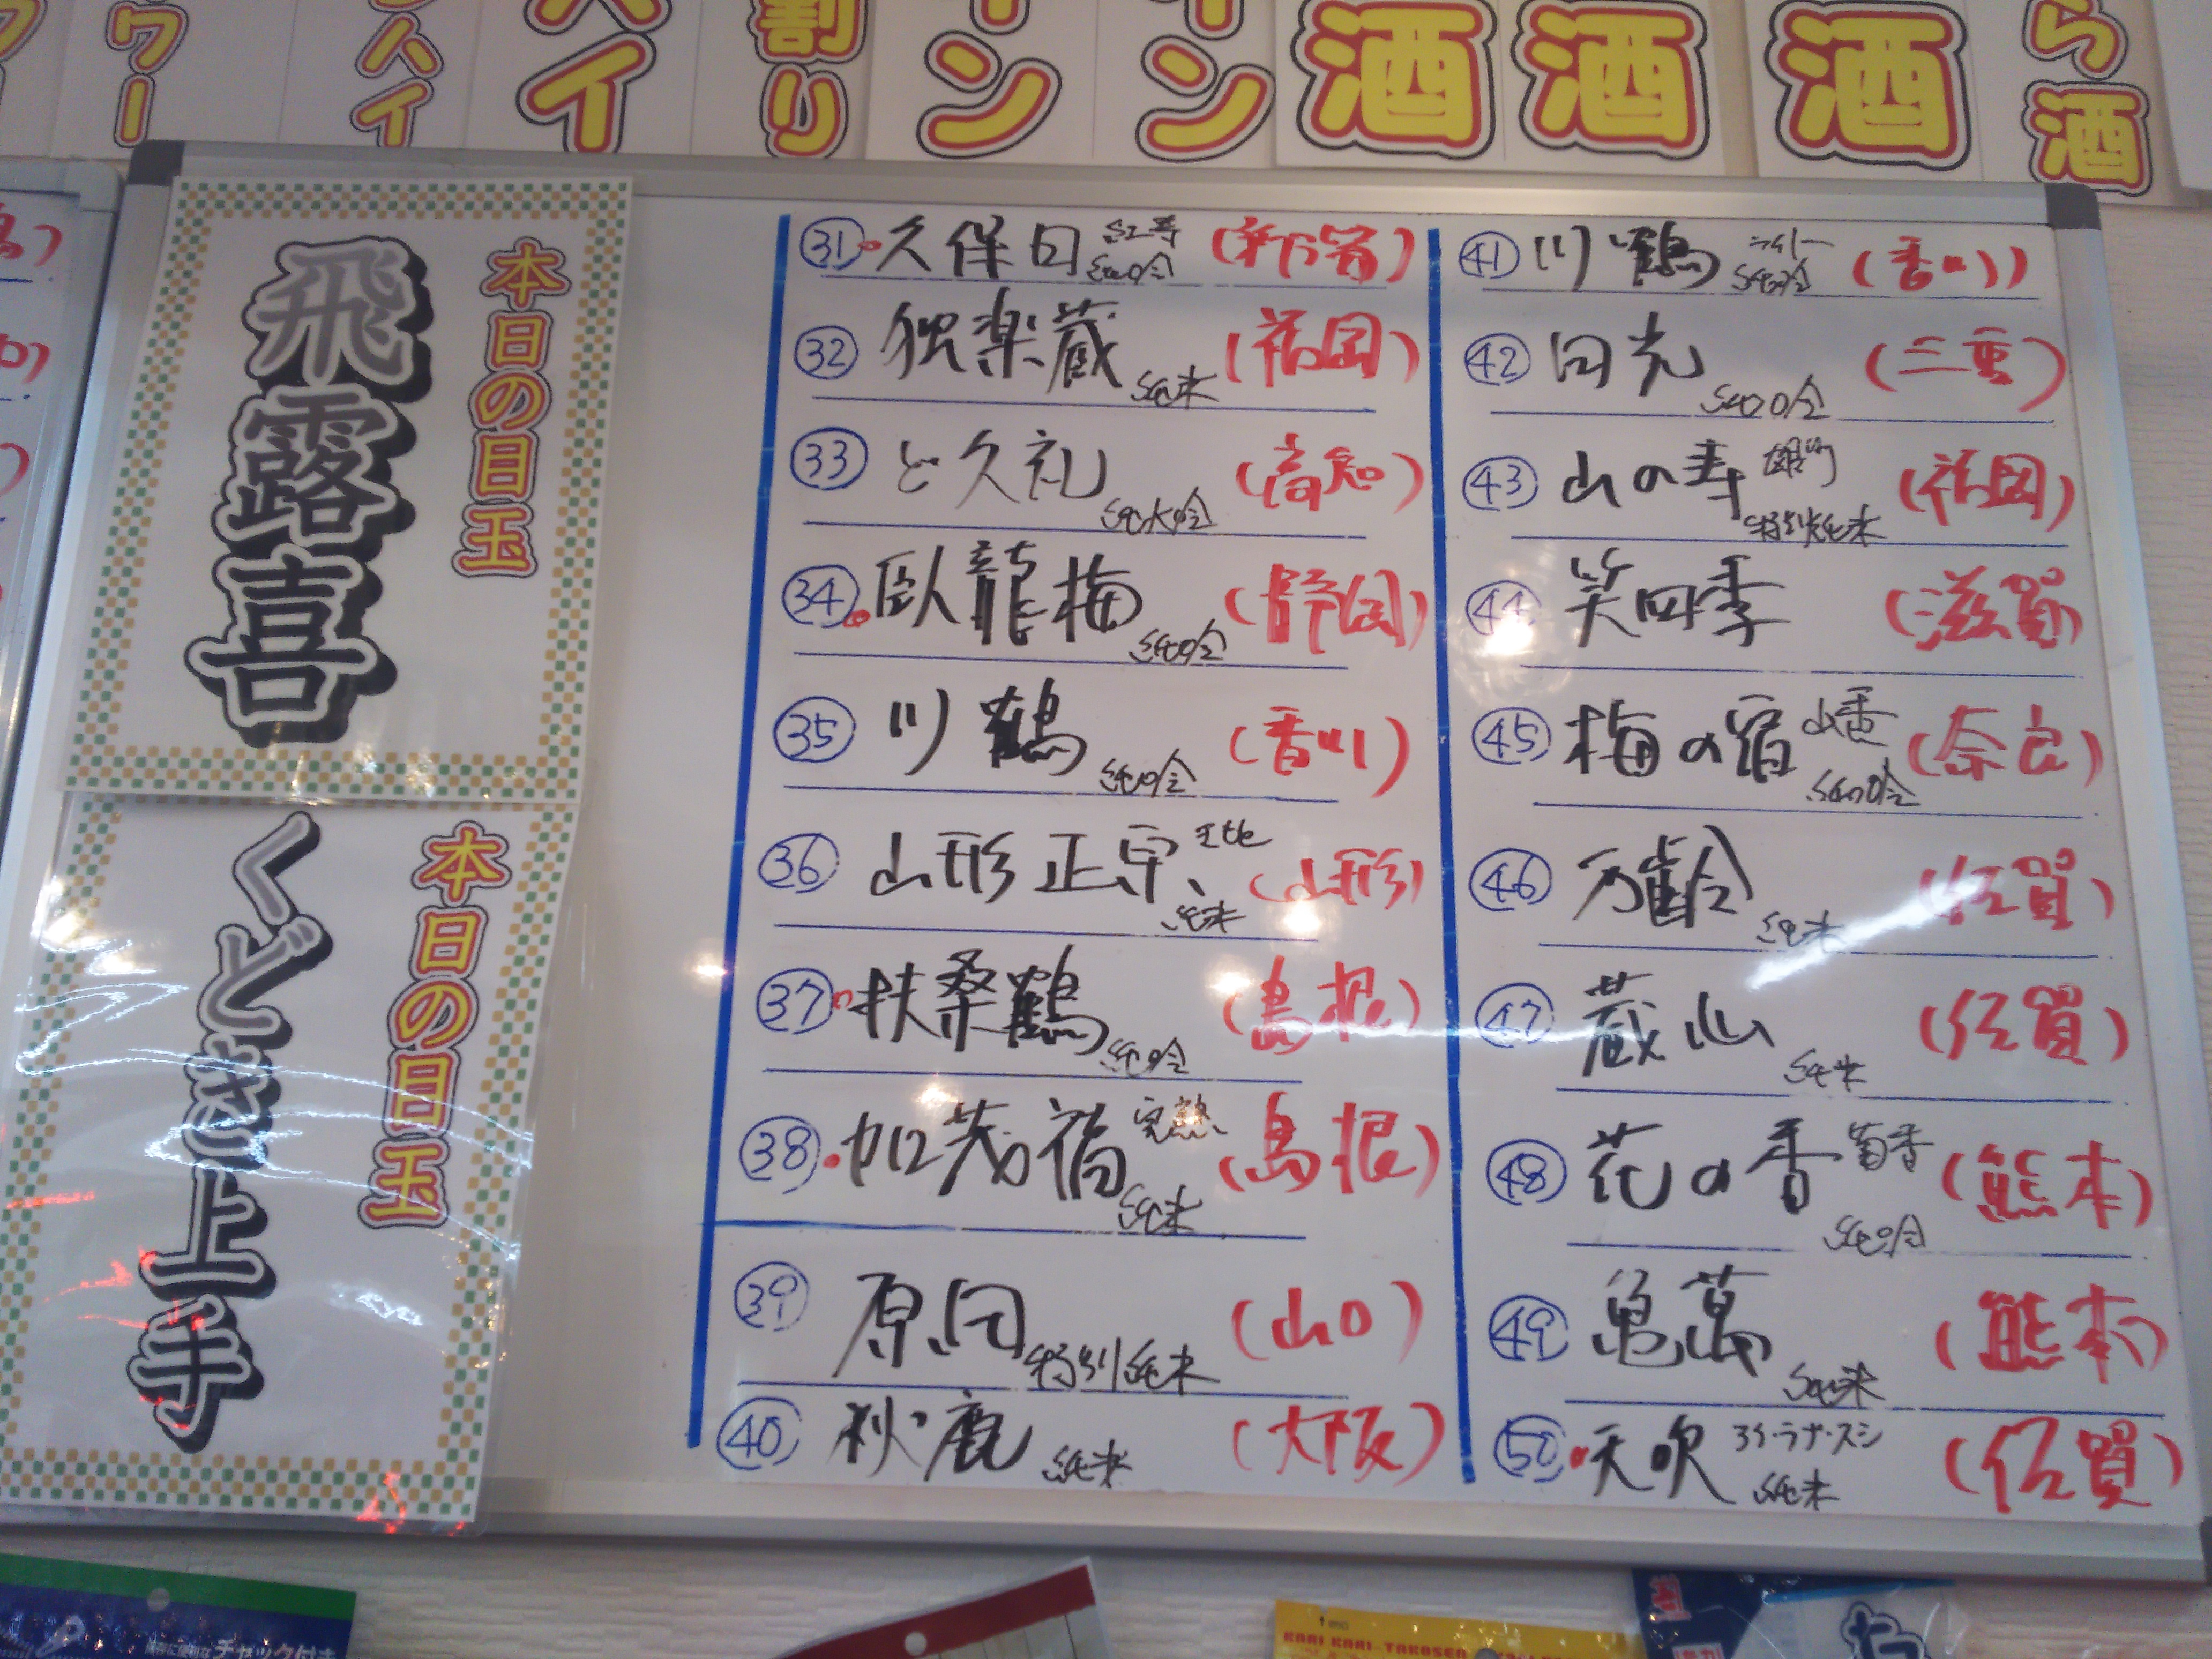 ワー
ハイ
ハイ
割り
イン
イン
酒
酒
酒
ら酒
本日の目玉
飛露喜
本日の目玉
くどき上手
㉛ 久保田 紅寿 純吟 (新潟)
㉜ 独楽蔵 純米 (福岡)
㉝ ど久礼 純大吟 (高知)
㉞ 臥龍梅 純吟 (静岡)
㉟ 川鶴 純吟 (香川)
㊱ 山形正宗 純米 (山形)
㊲ 扶桑鶴 純吟 (島根)
㊳ 加茂福 完熟 純米 (島根)
㊴ 原田 特別純米 (山口)
㊵ 秋鹿 純米 (大阪)
㊶ 川鶴 純吟 (香川)
㊷ 田光 純吟 (三重)
㊸ 山の寿 雄町 特別純米 (福岡)
㊹ 笑四季 (滋賀)
㊺ 梅の宿 山香 純吟 (奈良)
㊻ 万齢 純米 (佐賀)
㊼ 蔵心 純米 (佐賀)
㊽ 花の香 菊香 純吟 (熊本)
㊾ 亀萬 純米 (熊本)
㊿ 天吹 純米 (佐賀)
保存に便利なチャック付き
KARI KARI-TAKOSEN